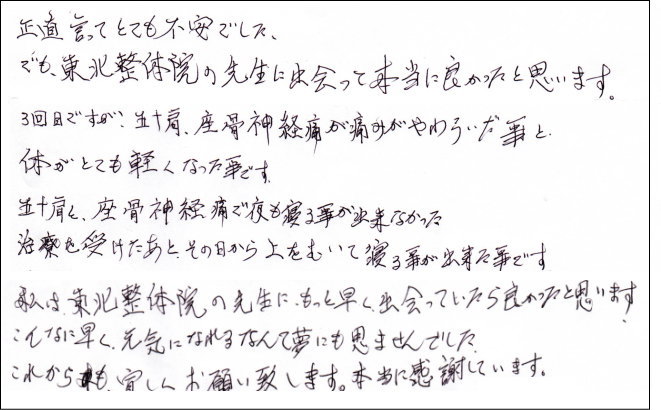 正直言ってとても不安でした、
でも、東北整体院の先生に出会って本当に良かったと思います。
3回目ですが、五十肩、座骨神経痛が痛みがやわらいだ事と、
体がとても軽くなった事です。
五十肩と、座骨神経痛で夜も寝る事が出来なかった
治療を受けたあと、その日から上をむいて寝る事が出来た事です
私は、東北整体院の先生に、もっと早く出会っていたら良かったと思います
こんなに早く、元気になれるなんて夢にも思ませんでした。
これからも、宜しくお願い致します。本当に感謝しています。